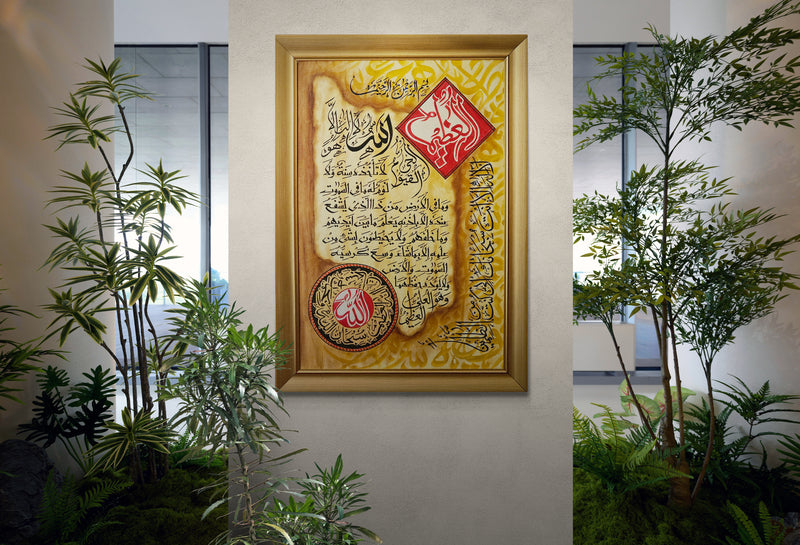 بسم الله الرحمن الرحيم
الله لا إله إلا هو
الحي القيوم لا تأخذه سنة ولا
نوم له ما في السموت
وما في الأرض من ذا الذي يشفع
عنده إلا بإذنه يعلم ما بين أيديهم
وما خلفهم ولا يحيطون بشيء من
علمه إلا بما شاء وسع كرسيه
السموت والأرض
ولا يئوده حفظهما
وهو العلي
العظيم
لا إله إلا أنت سبحانك إني كنت من الظالمين
الله